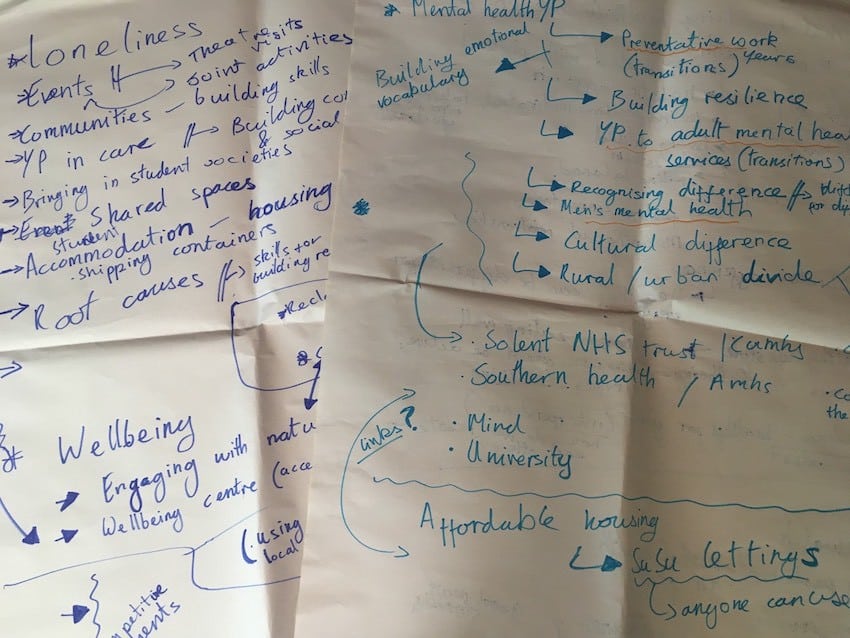 * Loneliness
→ Events → Theatre visits
→ joint activities
→ Communities - building skills
→ YP in care → Building
& social
→ Bringing in student societies
→ Shared spaces
student
→ Accommodation - housing
· shipping containers
→ Root causes → skills for
building
→
* Wellbeing
→ Engaging with
→ Wellbeing centre
(using
local
* Mental health YP
Building emotional
vocabulary
→ Preventative work
(transitions) years
→ Building resilience
→ YP to adult mental
services (transitions)
→ Recognising difference
→ Men's mental health
→ Cultural difference
→ Rural / urban divide
*
· Solent NHS trust / Camhs
· Southern health / Amhs
Links?
· Mind
· University
Affordable housing
→ SUSU lettings
→ anyone can use